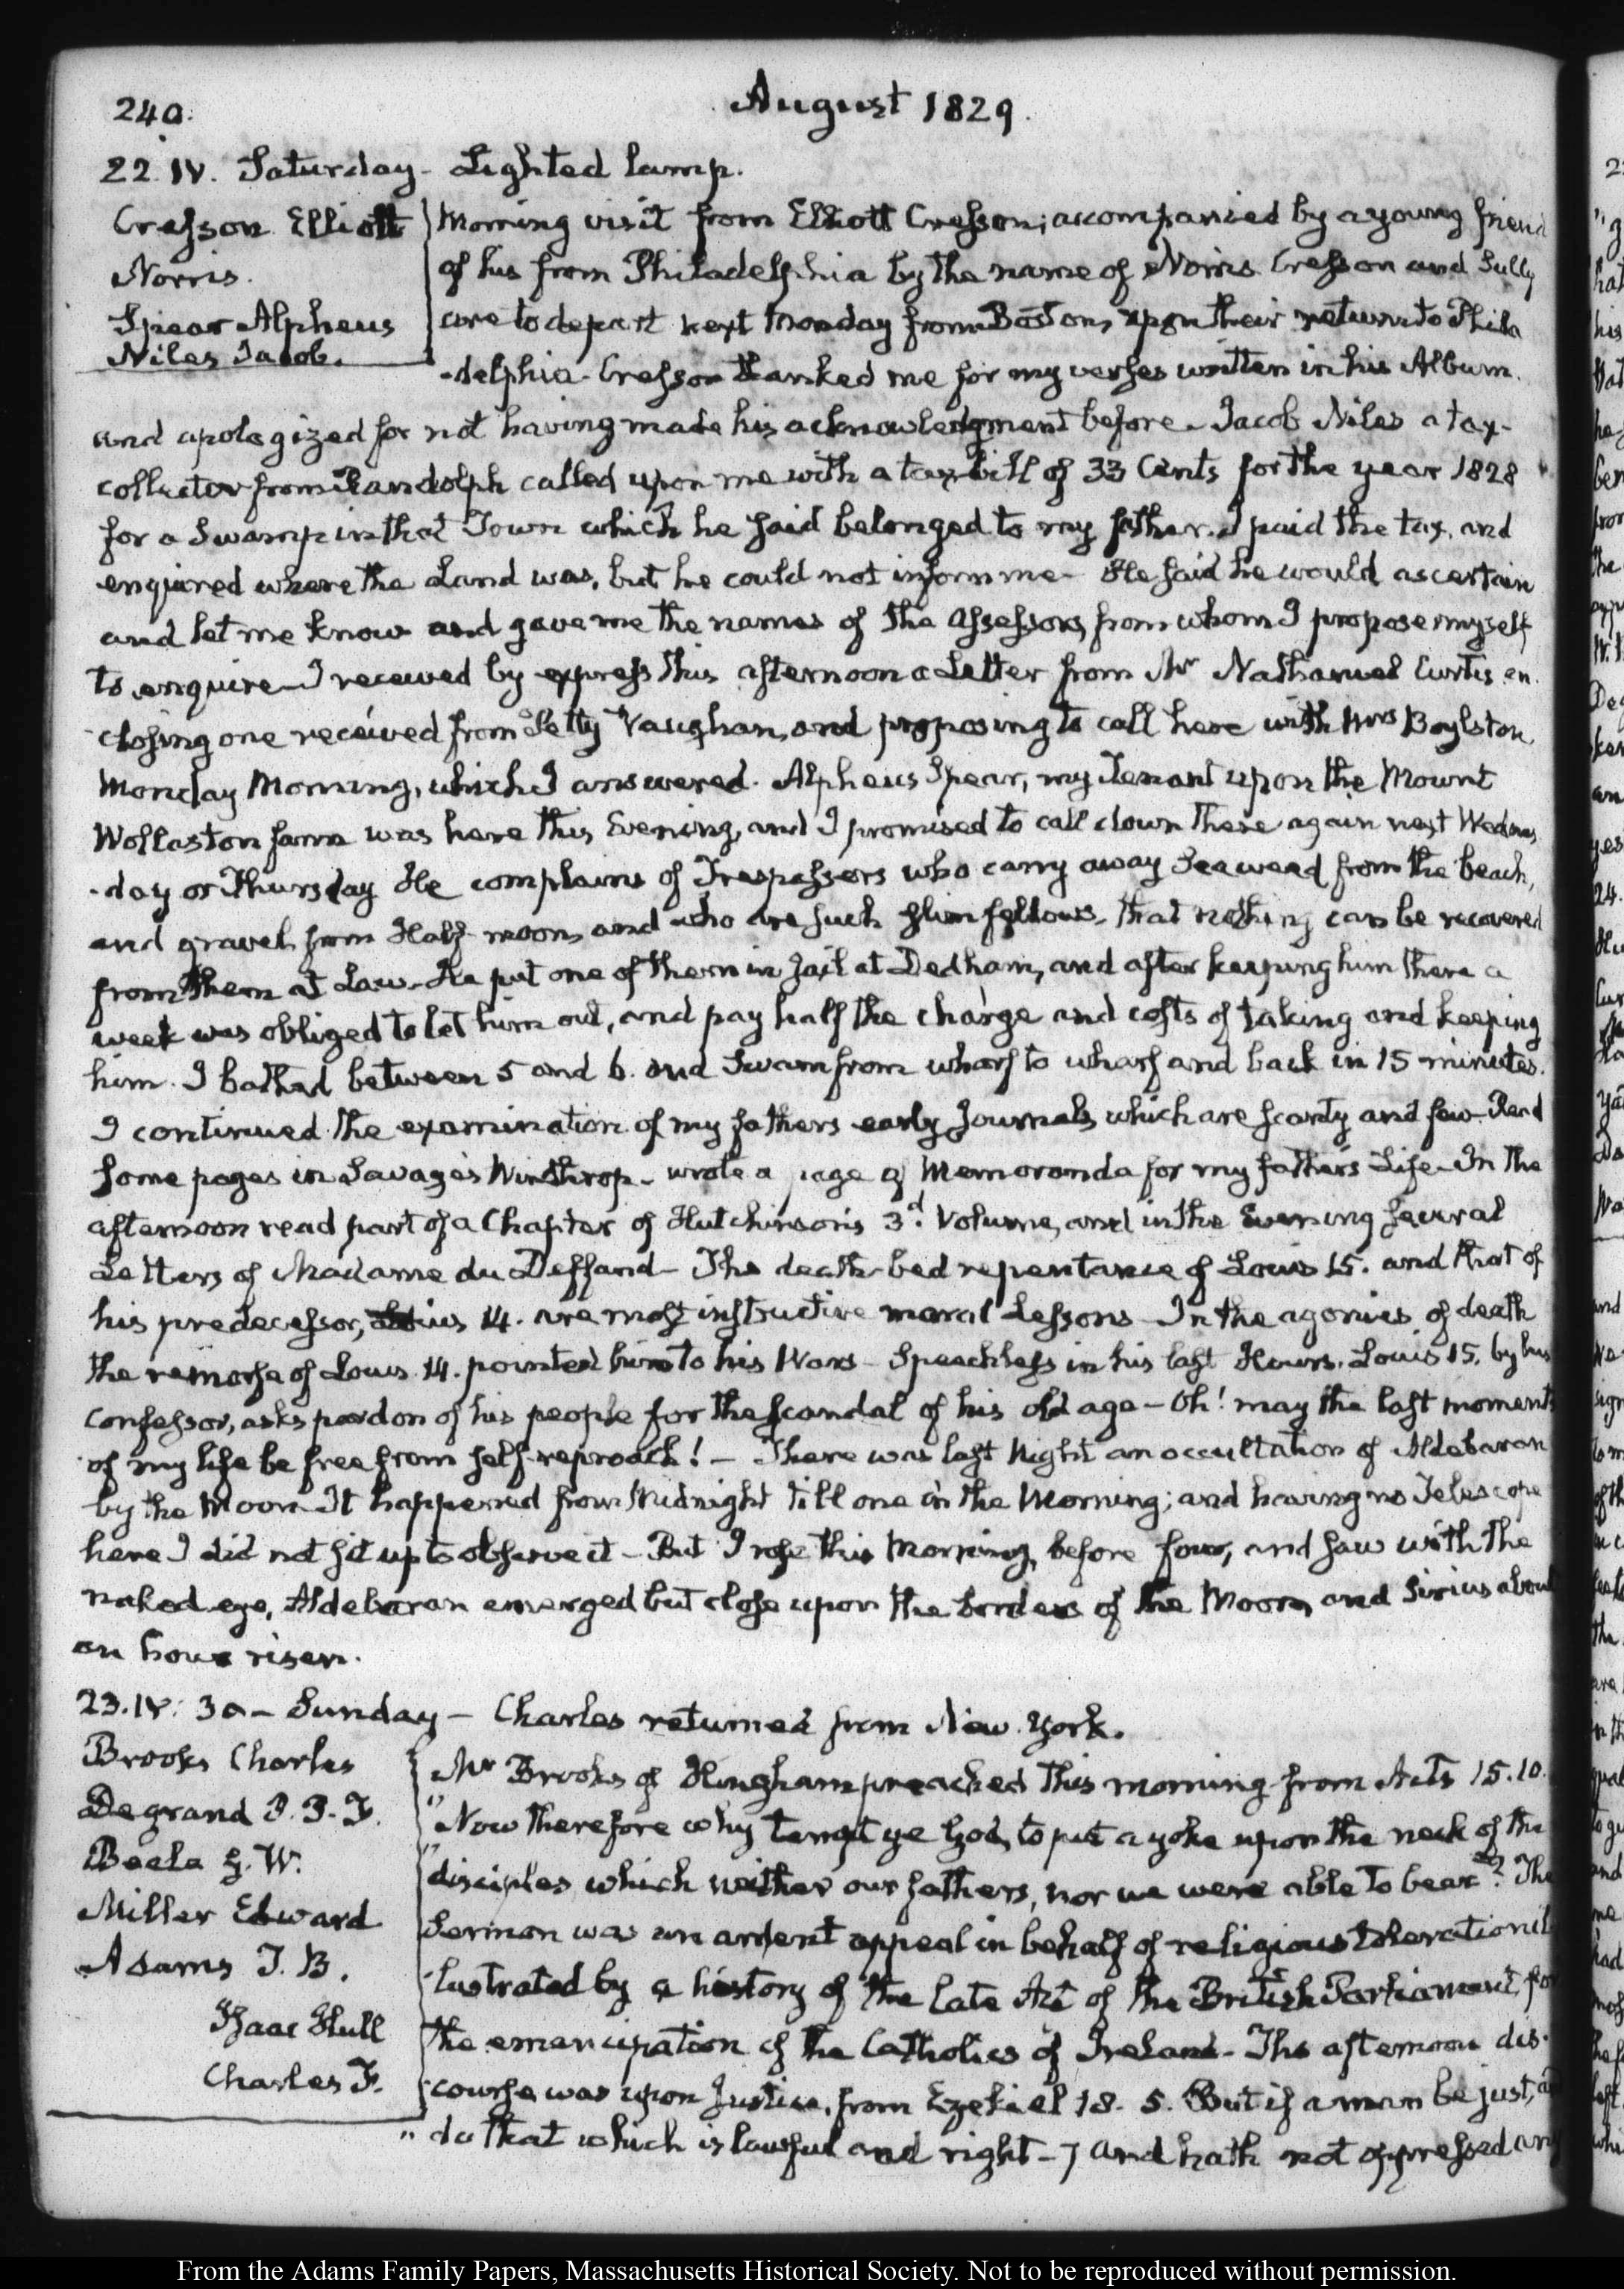 240.
August 1829.
22. IV. Saturday - Lighted lamp.
Cresson Elliott
Norris.
Spear Alpheus
Niles Jacob.
Morning visit from Elliott Cresson; accompanied by a young friend
of his from Philadelphia by the name of Norris. Cresson and Sully
are to depart next Monday from Boston, upon their return to Phila
-delphia - Cresson thanked me for my verses written in his Album.
and apologized for not having made his acknowledgment before. Jacob Niles a tax-
collector from Randolph called upon me with a tax bill of 33 Cents for the year 1828
for a Swamp in that Town which he said belonged to my father. I paid the tax, and
enquired where the Land was, but he could not inform me - He said he would ascertain
and let me know and gave me the names of the Assessors, from whom I propose myself
to enquire - I received by express this afternoon a Letter from Mr Nathaniel Curtis en-
closing one received from Petty Vaughan, and proposing to call here with Mrs Boylston,
Monday Morning, which I answered. Alpheus Spear, my Tenant upon the Mount
Wollaston farm was here this Evening, and I promised to call down there again next Wednes
-day or Thursday He complains of Trespassers who carry away Sea weed from the beach,
and gravel from Half moon, and who are such slim fellows, that nothing can be recovered
from them at Law. He put one of them in Jail at Dedham, and after keeping him there a
week was obliged to let him out, and pay half the charge and costs of taking and keeping
him. I bathed between 5 and 6. and Swam from wharf to wharf and back in 15 minutes.
I continued the examination of my fathers early Journals which are scanty and few. Read
some pages in Savage's Winthrop - wrote a page of Memoranda for my father's Life - In the
afternoon read part of a Chapter of Hutchinson's 3d. Volume, and in the Evening several
Letters of Madame du Deffand - The death-bed repentance of Louis 15. and that of
his predecessor, Louis 14. are most instructive moral Lessons - In the agonies of death
the remorse of Louis 14. pointed him to his Wars - Speechless in his last Hours, Louis 15, by his
Confessor, asks pardon of his people for the scandal of his old age - Oh! may the last moments
of my life be free from self-reproach! - There was last Night an occultation of Aldebaran
by the Moon - It happened from Midnight till one in the Morning; and having no Telescope
here I did not sit up to observe it - But I rose this Morning, before four, and saw with the
naked eye, Aldebaran emerged but close upon the borders of the Moon, and Sirius about
an hour risen.
23. IV: 30 - Sunday - Charles returned from New York.
Brooks Charles
Degrand P. P. F.
Beale G. W.
Miller Edward
Adams T. B.
Isaac Hull
Charles F.
Mr Brooks of Hingham preached this morning from Acts 15.10.
"Now therefore why tempt ye God, to put a yoke upon the neck of the
"disciples which neither our fathers, nor we were able to bear"? The
Sermon was an ardent appeal in behalf of religious toleration il-
lustrated by a history of the late Act of the British Parliament, for
the emancipation of the Catholics of Ireland - The afternoon dis-
course was upon Justice, from Ezekiel 18. 5. But if a man be just, and
"do that which is lawful and right - 7 and hath not oppressed any
From the Adams Family Papers, Massachusetts Historical Society. Not to be reproduced without permission.